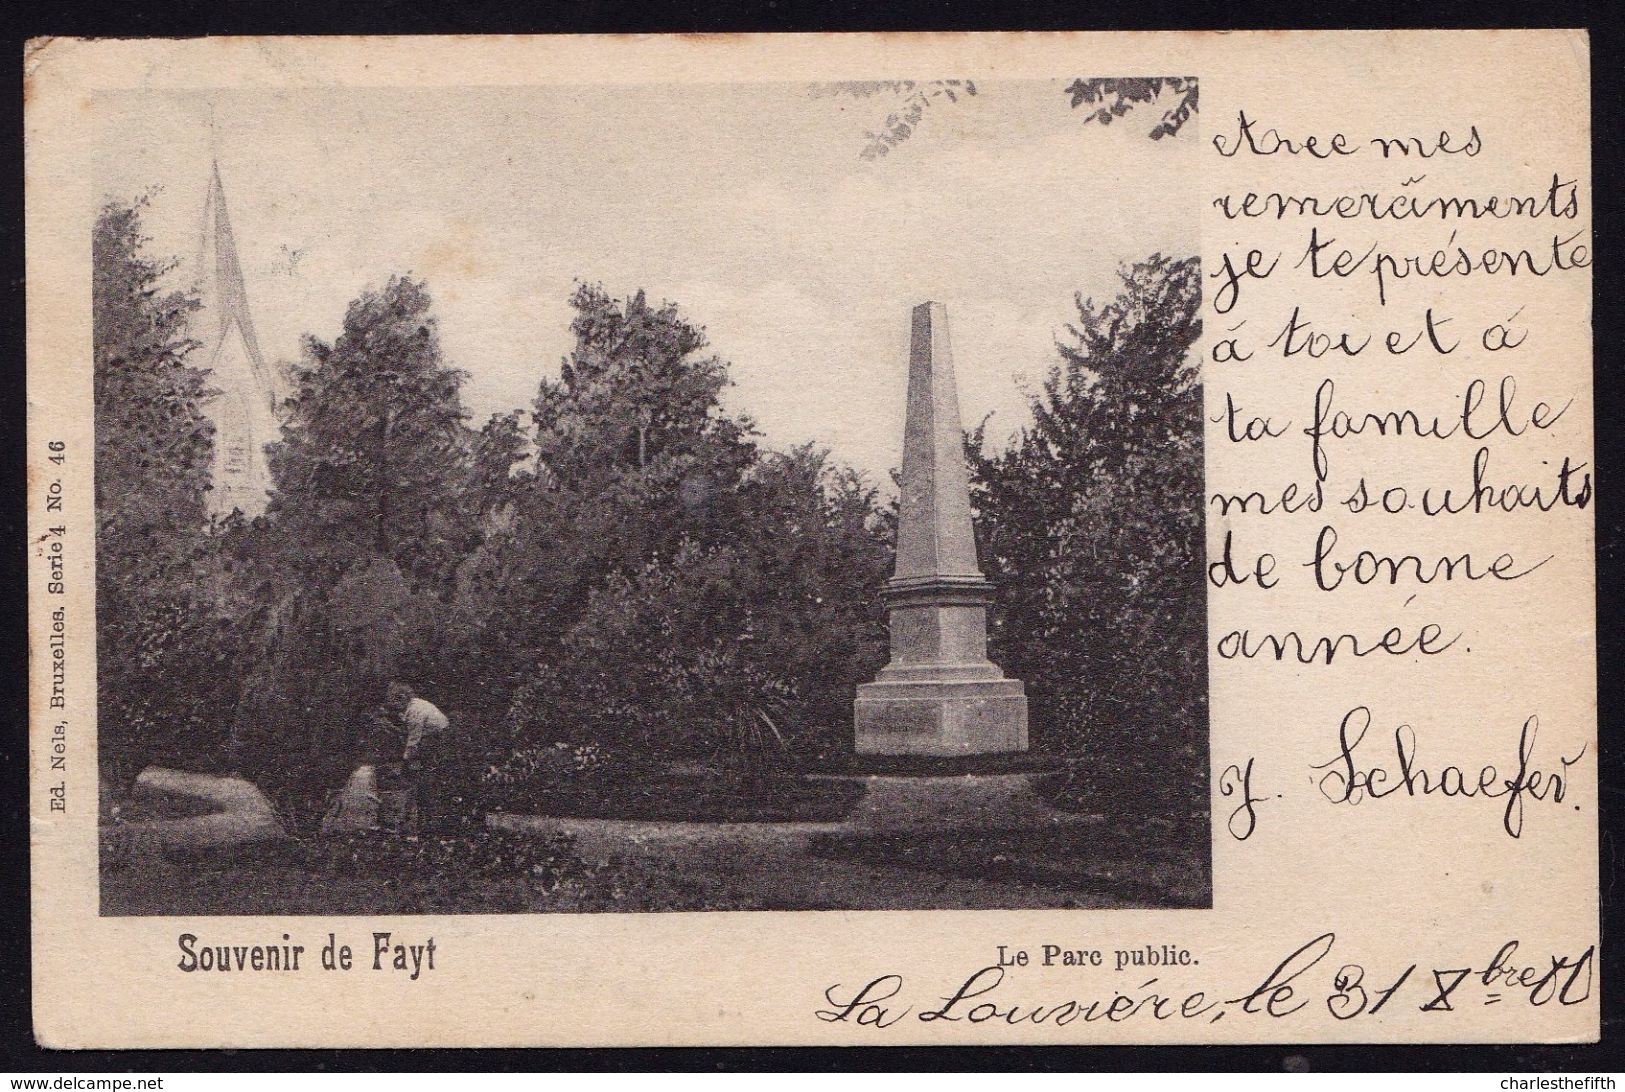 Avec mes
remercîments
je te présente
à toi et à
ta famille
mes souhaits
de bonne
année.
J. Schaefer.
Ed. Nels, Bruxelles. Serie 4 No. 46
Souvenir de Fayt
Le Parc public.
La Louvière, le 31 Xbre
charlesthefifth